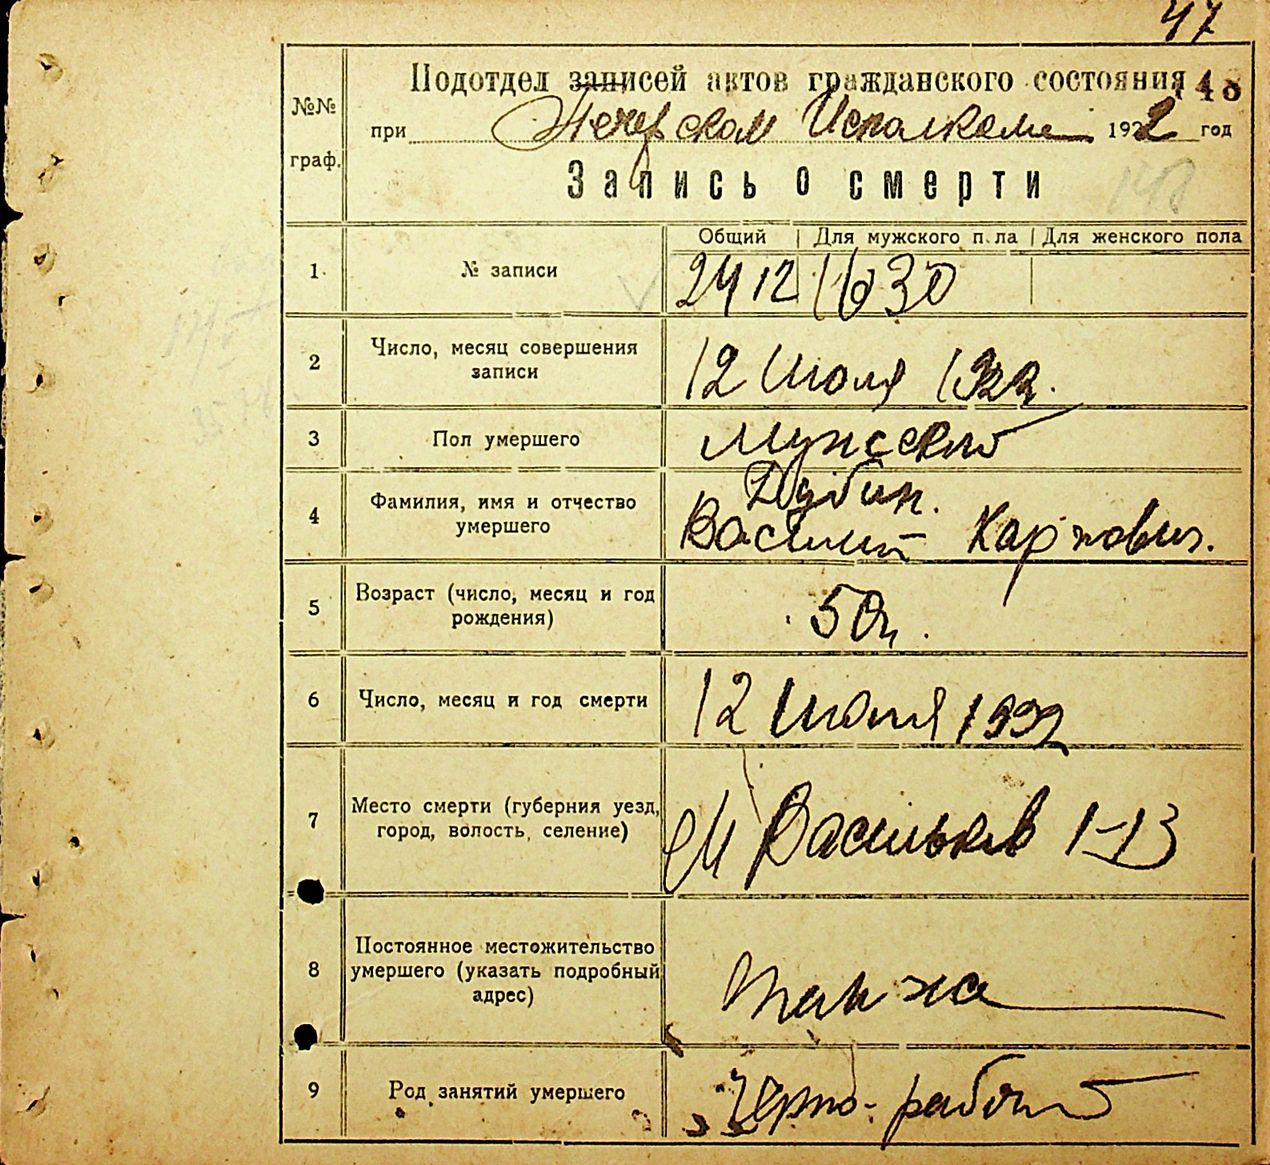 47
Подотдел записей актов гражданского состояния 48
при Печерском Исполкоме 1922 год
№№ граф.
Запись о смерти
148
Общий | Для мужского пола | Для женского пола
1 № записи 2412 1630
2 Число, месяц совершения
записи
12 Июля 1922.
3 Пол умершего Мужской
4 Фамилия, имя и отчество
умершего
Дубин.
Василий Карпович.
5 Возраст (число, месяц и год
рождения)
50 л.
6 Число, месяц и год смерти 12 Июля 1922
7 Место смерти (губерния уезд,
город, волость, селение)
М Васильков 1-13
8 Постоянное местожительство
умершего (указать подробный
адрес)
там же
9 Род занятий умершего Черно-рабочий